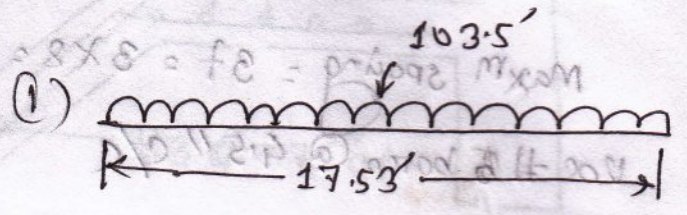 103.5'
(1)
17.53'